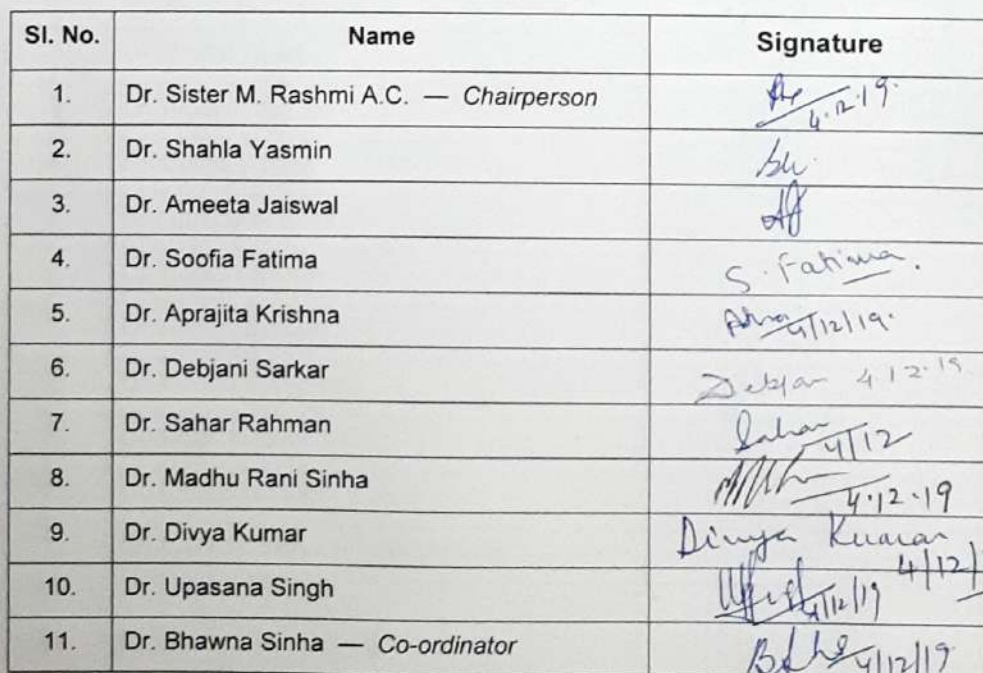 Sl. No. Name Signature
1. Dr. Sister M. Rashmi A.C. — Chairperson 4.12.19.
2. Dr. Shahla Yasmin
3. Dr. Ameeta Jaiswal
4. Dr. Soofia Fatima S. Fatima.
5. Dr. Aprajita Krishna 4/12/19.
6. Dr. Debjani Sarkar 4.12.19
7. Dr. Sahar Rahman Sahar 4/12
8. Dr. Madhu Rani Sinha 4.12.19
9. Dr. Divya Kumar Divya Kumar 4/12/
10. Dr. Upasana Singh 4/12/19
11. Dr. Bhawna Sinha — Co-ordinator 4/12/19